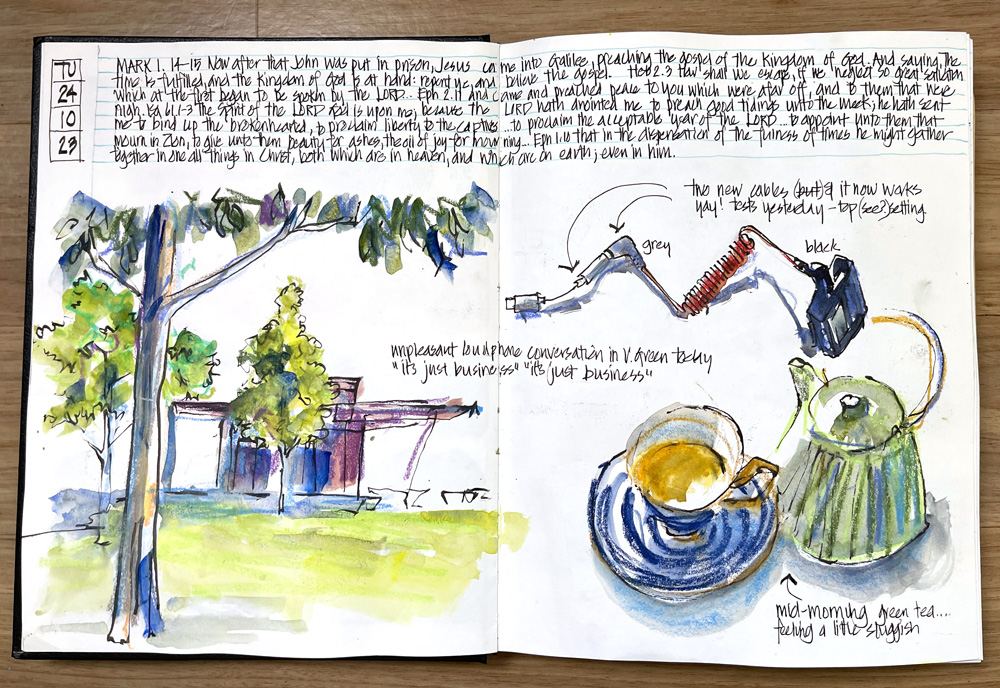 TU
24
10
23
MARK 1. 14-15 Now after that John was put in prison, Jesus came into Galilee, preaching the gospel of the kingdom of God. And saying, The
time is fulfilled, and the kingdom of God is at hand: repent ye, and believe the gospel. Heb 2.3 How shall we escape, if we neglect so great salvation
which at the first began to be spoken by the LORD... Eph 2.17 And came and preached peace to you which were afar off, and to them that were
nigh. Isa 61.1-3 The spirit of the LORD God is upon me; because the LORD hath anointed me to preach good tidings unto the meek; he hath sent
me to bind up the brokenhearted, to proclaim liberty to the captives ...to proclaim the acceptable year of the LORD... to appoint unto them that
mourn in Zion, to give unto them beauty for ashes, the oil of joy for mourning... Eph 1.10 that in the dispensation of the fulness of times he might gather
together in one all things in Christ, both which are in heaven, and which are on earth; even in him.
two new cables (but) & it now works
yay! tests yesterday - top (see?) setting
grey
black
unpleasant loud phone conversation in V. Green today
"it's just business" "it's just business"
mid-morning green tea....
feeling a little sluggish